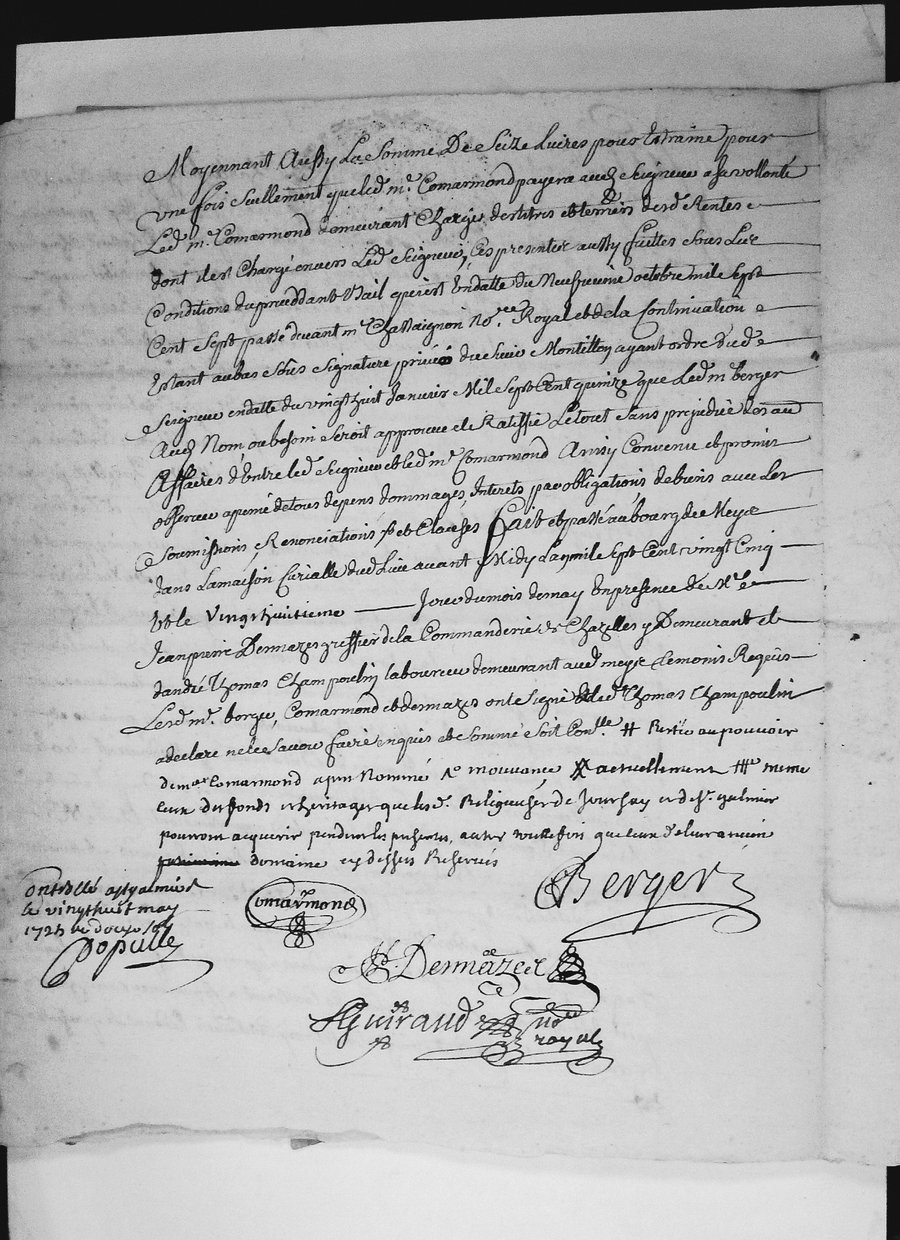 Moyennant Aussy La Somme De Seize Livres pour Estraine pour
une fois seullement que led mr. Comarmond payera aud Seigneur a sa vollonté
Led mr. Comarmond demeurant Chargé des titres et terriers desd Rentes
dont il est Chargé envers Led Seigneur, Ces presentes aussy faittes sous Les
Conditions du preceddant Bail en datte du Neufvieme octobre mile sept
Cent sept passé devant mr Chassaignon Nore. Royal et de la Continuation
Estant au bas sous signature privée du sieur Montillon ayant ordre dud
Seigneur en datte du vingt huit Janvier Mil sept Cent quinze que Led mr berger
Aud Nom au besoin seroit approuve et Ratiffie Le tout sans prejudice des au
Affaires d'Entre led Seigneur et led mr. Comarmond Ainsy Convenu et promis
observer a peine de tous depens dommages, Interets par obligations de biens avec Les
Soumissions, Renonciations, et Clauses fait et passé au bourg de Meys
dans La maison Curialle dud Lieu avant Midy L'an mile sept Cent vingt Cinq
Et le Vingt huitieme Jour du mois de may En presence de Me
Jean pierre Desmazes greffier de la Commanderie de Chazelles y Demeurant et
d'andré Thomas Champoulin laboureur demeurant aud meys temoins Requis
Lesd mr. berger, Comarmond et desmazes ont signé et led Thomas Champoulin
a declare ne le savoir faire enquis et sommé soit Conlle. # au pouvoir
de mr Comarmond actuellement meme
Ceux des fonds et heritages que les d. Religieuses de Jourssey et de st. galmier
pourront acquerir pendant les presentes, autre touttesfois que Ceux de leur ancien
domaine cy dessus Reservés
Berger
Comarmond
Controllé a st galmier
le vingt huit may
1725
Populle
Desmazes
Guiraud nore
royal